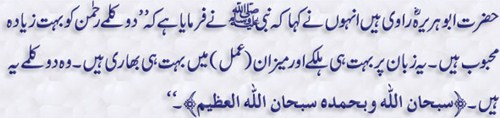 حضرت ابو ہریرہؓ راوی ہیں انہوں نے کہا کہ نبی ﷺ نے فرمایا ہے کہ ’’دو کلمے رحمٰن کو بہت زیادہ
محبوب ہیں۔ یہ زبان پر بہت ہی ہلکے اور میزان (عمل) میں بہت ہی بھاری ہیں۔ وہ دو کلمے یہ
ہیں۔ ﴿سبحان الله وبحمده سبحان الله العظيم﴾۔‘‘